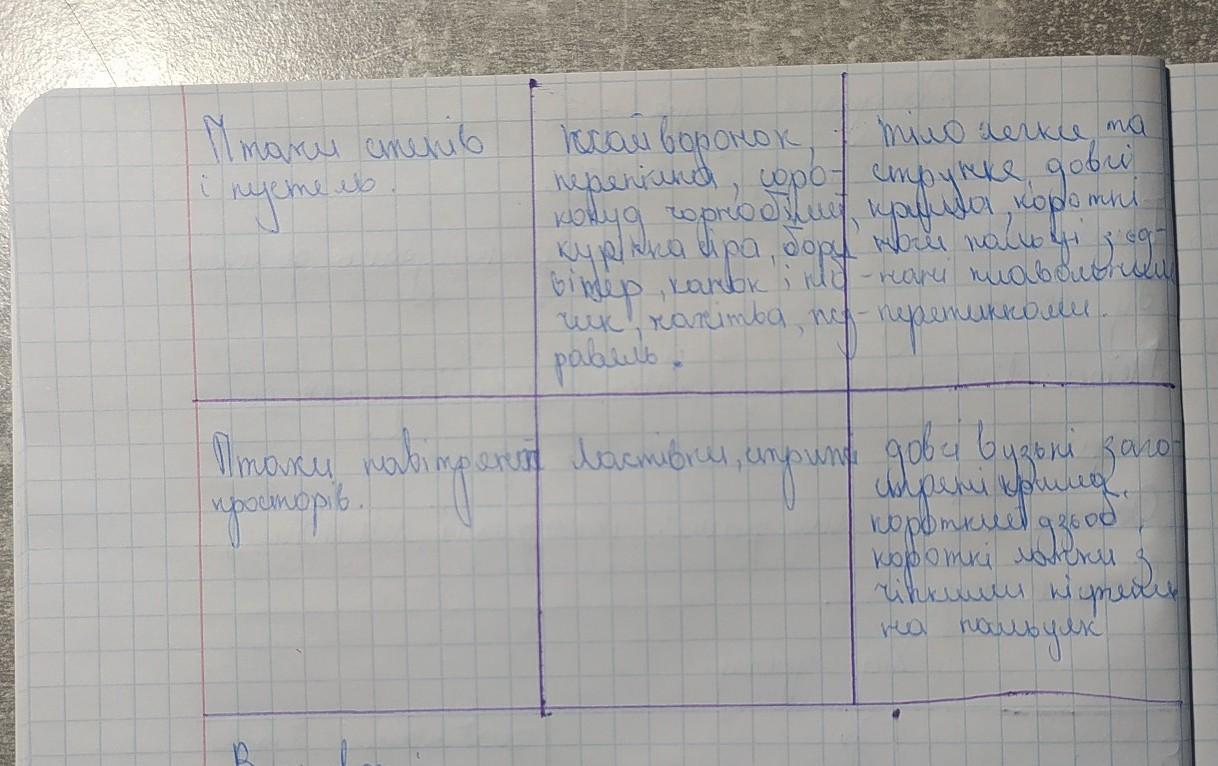 Птахи степів
і пустель.
жайворонок,
перепілка, соро-
копуд чорнолобий,
куріпка сіра, бори
вітер, канюк і
чик, хохітва, жу-
равель.
тіло легке та
струнке, довгі
крила, короткі
ноги пальці з'єд-
нані плавальними
перетинками.
Птахи повітряних
просторів.
Ластівки, стрижі
довгі вузькі заго-
стрені крила,
короткий дзьоб,
короткі лапки з
чіпкими кігтями
на пальцях